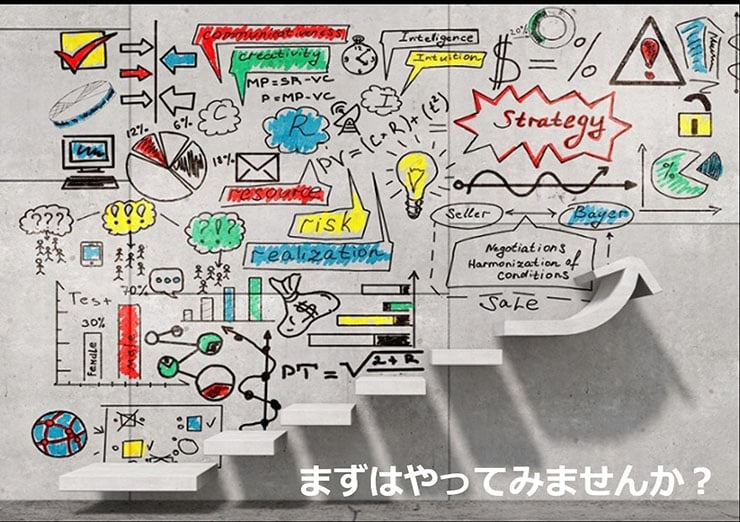 communicativeness
creativity
Inteligence
Intuition
20%
$ = %
!
MP=SR-VC
P=MP-VC
C
R
I
Strategy
12%
6%
18%
PV=(C+R)+(t²)
%
resource
risk
realization
Seller
Bayer
Negotiations
Harmonization of
Conditions
Sale
???
!!!
???
Test
70%
30%
Female
Male
$
PT=√2+R
まずはやってみませんか？